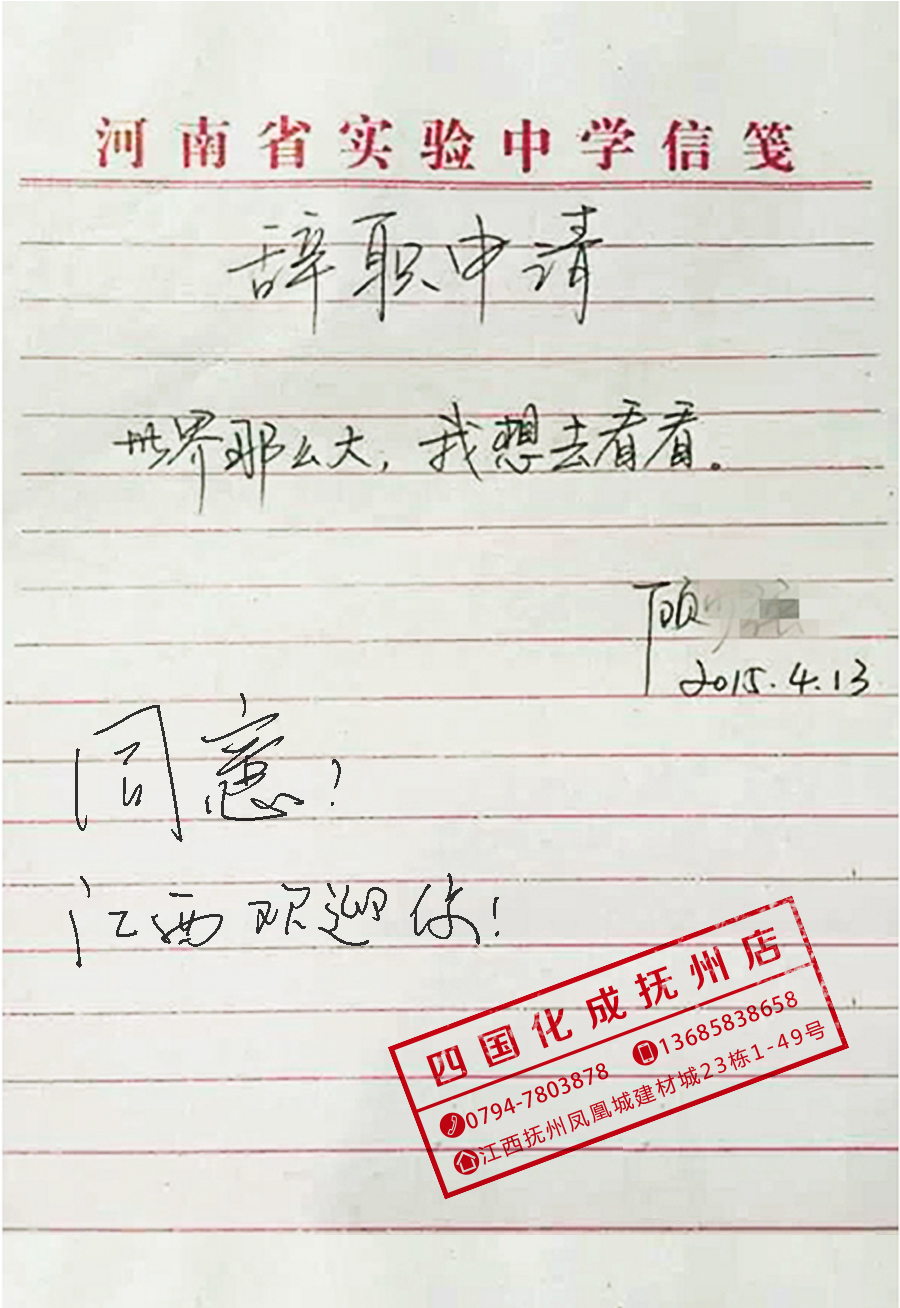 河南省实验中学信笺
辞职申请
世界那么大，我想去看看。
顾
2015.4.13
同意！
江西欢迎你！
四国化成抚州店
0794-7803878 13685838658
江西抚州凤凰城建材城23栋1-49号